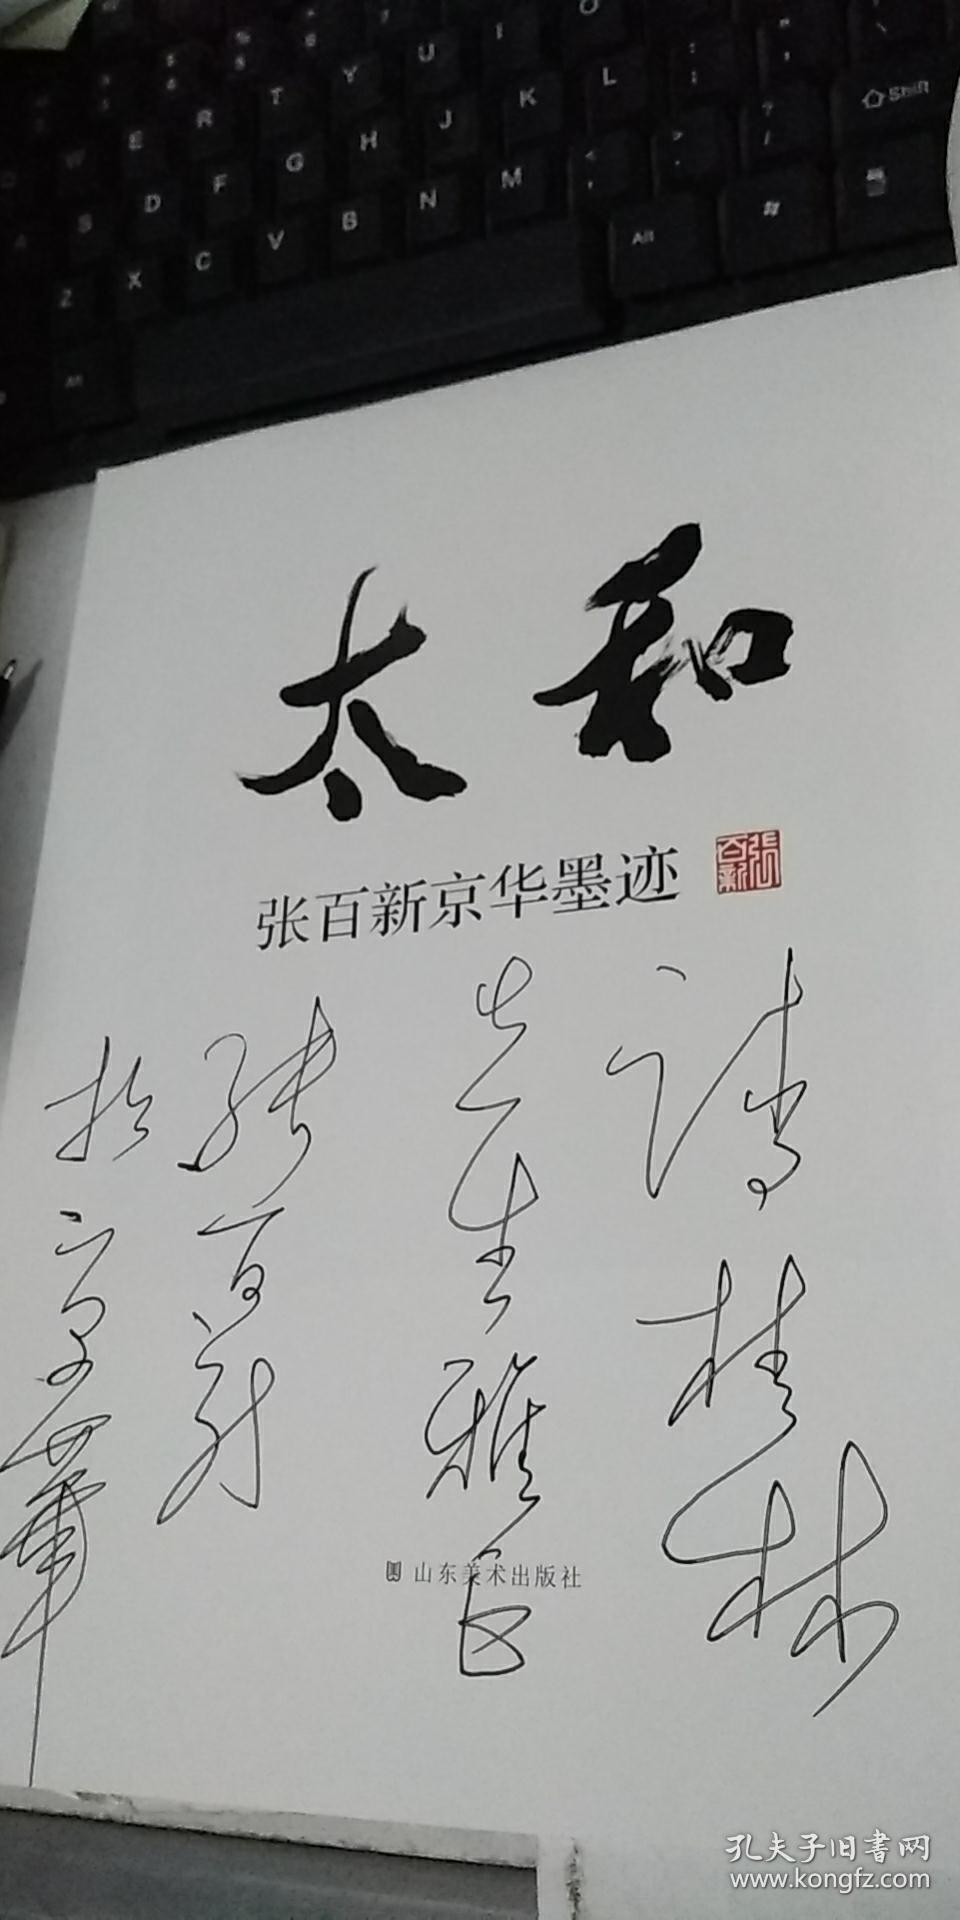 T Y U I O
W E R
D F G H J K L : ;
A S
Z X C V B N M < , > . ? / Shift
Alt Alt
太和
张百新京华墨迹
张百新
请桂林
先生雅正
张百新
于京华
山东美术出版社
孔夫子旧书网
www.kongfz.com